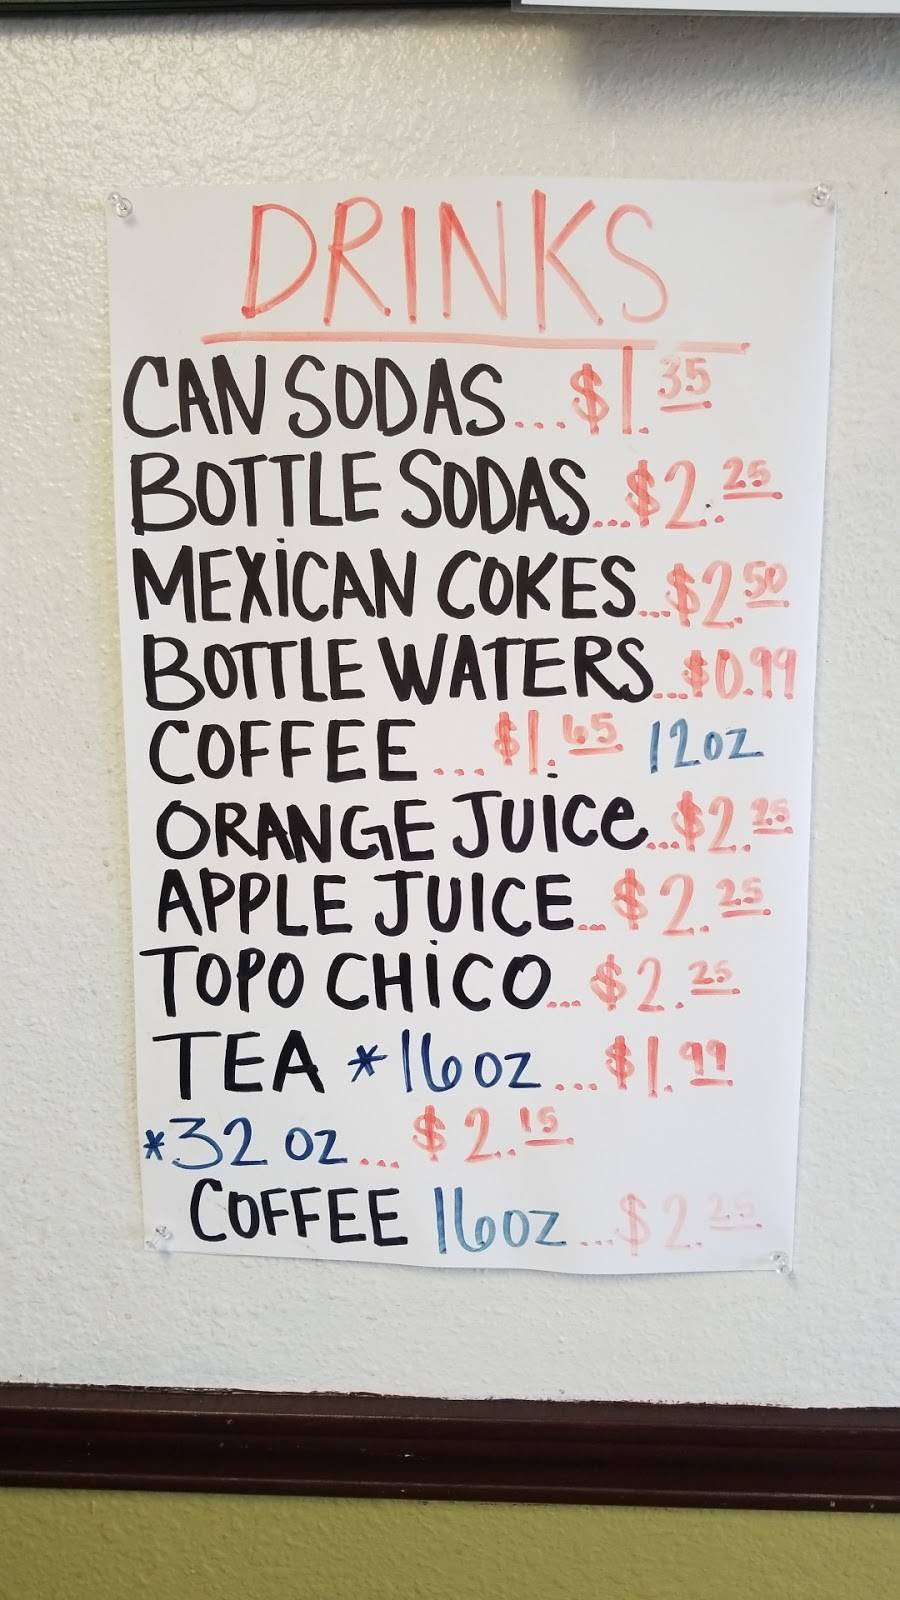 DRINKS
CAN SODAS...$1.35
BOTTLE SODAS...$2.25
MEXiCAN COKES...$2.50
BOTTLE WATERS...$0.99
COFFEE...$1.65 12oz
ORANGE JUiCe...$2.25
APPLE JUICE...$2.25
TOPO CHiCO...$2.25
TEA *16oz...$1.99
*32oz...$2.15
COFFEE 16oz...$2.25